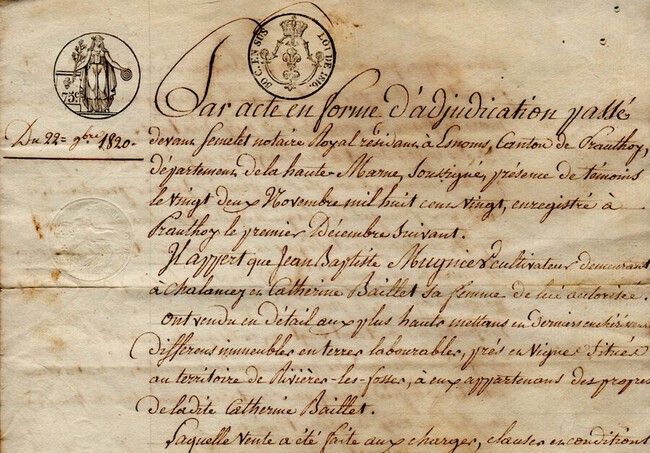 75c.
30 C. EN SUS
LOI DE 1816.
Du 22= 9bre 1820.
Par acte en forme d'adjudication passé
devant Semelet notaire Royal résidant à Esnoms, Canton de Prauthoy,
département de la haute Marne, Soussigné, présence de témoins
le vingt deux Novembre mil huit cent vingt, enregistré à
Prauthoy le premier Décembre Suivant.
Il appert que Jean Baptiste Mugnier cultivateur demeurant
à Chalancey et Catherine Baillet sa femme de lui autorisée.
Ont vendu en détail aux plus hauts mettans et derniers enchérisseurs
différens immeubles en terres labourables, prés et vignes Situés
au territoire de Rivières-les-fosses, à eux appartenans des propres
de la dite Catherine Baillet.
Laquelle Vente a été faite aux charges, clauses et conditions